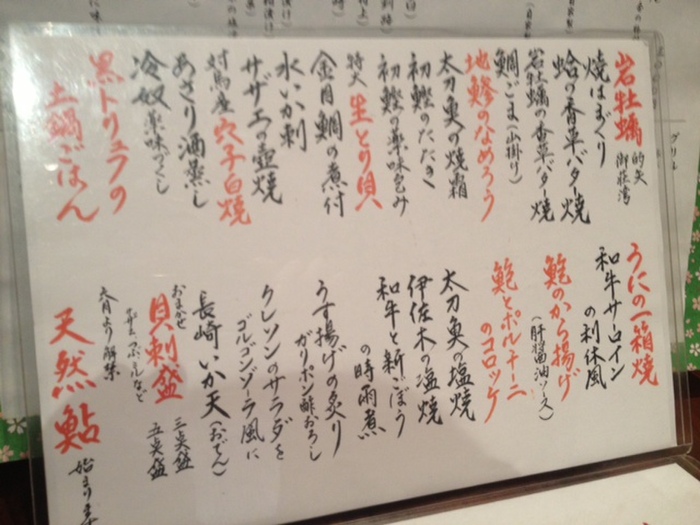 岩牡蠣 的矢 御荘湾
焼はまぐり
蛤の香草バター焼
岩牡蠣の香草バター焼
鯛ごま(山掛り)
地鯵のなめろう
太刀魚の焼霜
初鰹のたたき
初鰹の薬味包み
特大 生とり貝
金目鯛の煮付
水いか刺
サザエの壺焼
対馬産 穴子白焼
あさり酒蒸し
冷奴 薬味づくし
黒トリュフの
土鍋ごはん
うにの一箱焼
和牛サーロイン
の利休風
鮑のから揚げ
(肝醤油ソース)
鮑とポルチーニ
のコロッケ
太刀魚の塩焼
伊佐木の塩焼
和牛と新ごぼう
の時雨煮
うす揚げの炙り
ガリポン酢おろし
クレソンのサラダを
ゴルゴンゾーラ風に
長崎いか天(おでん)
おまかせ
貝刺盛 三点盛 五点盛
六月より解禁
天然鮎 始ります